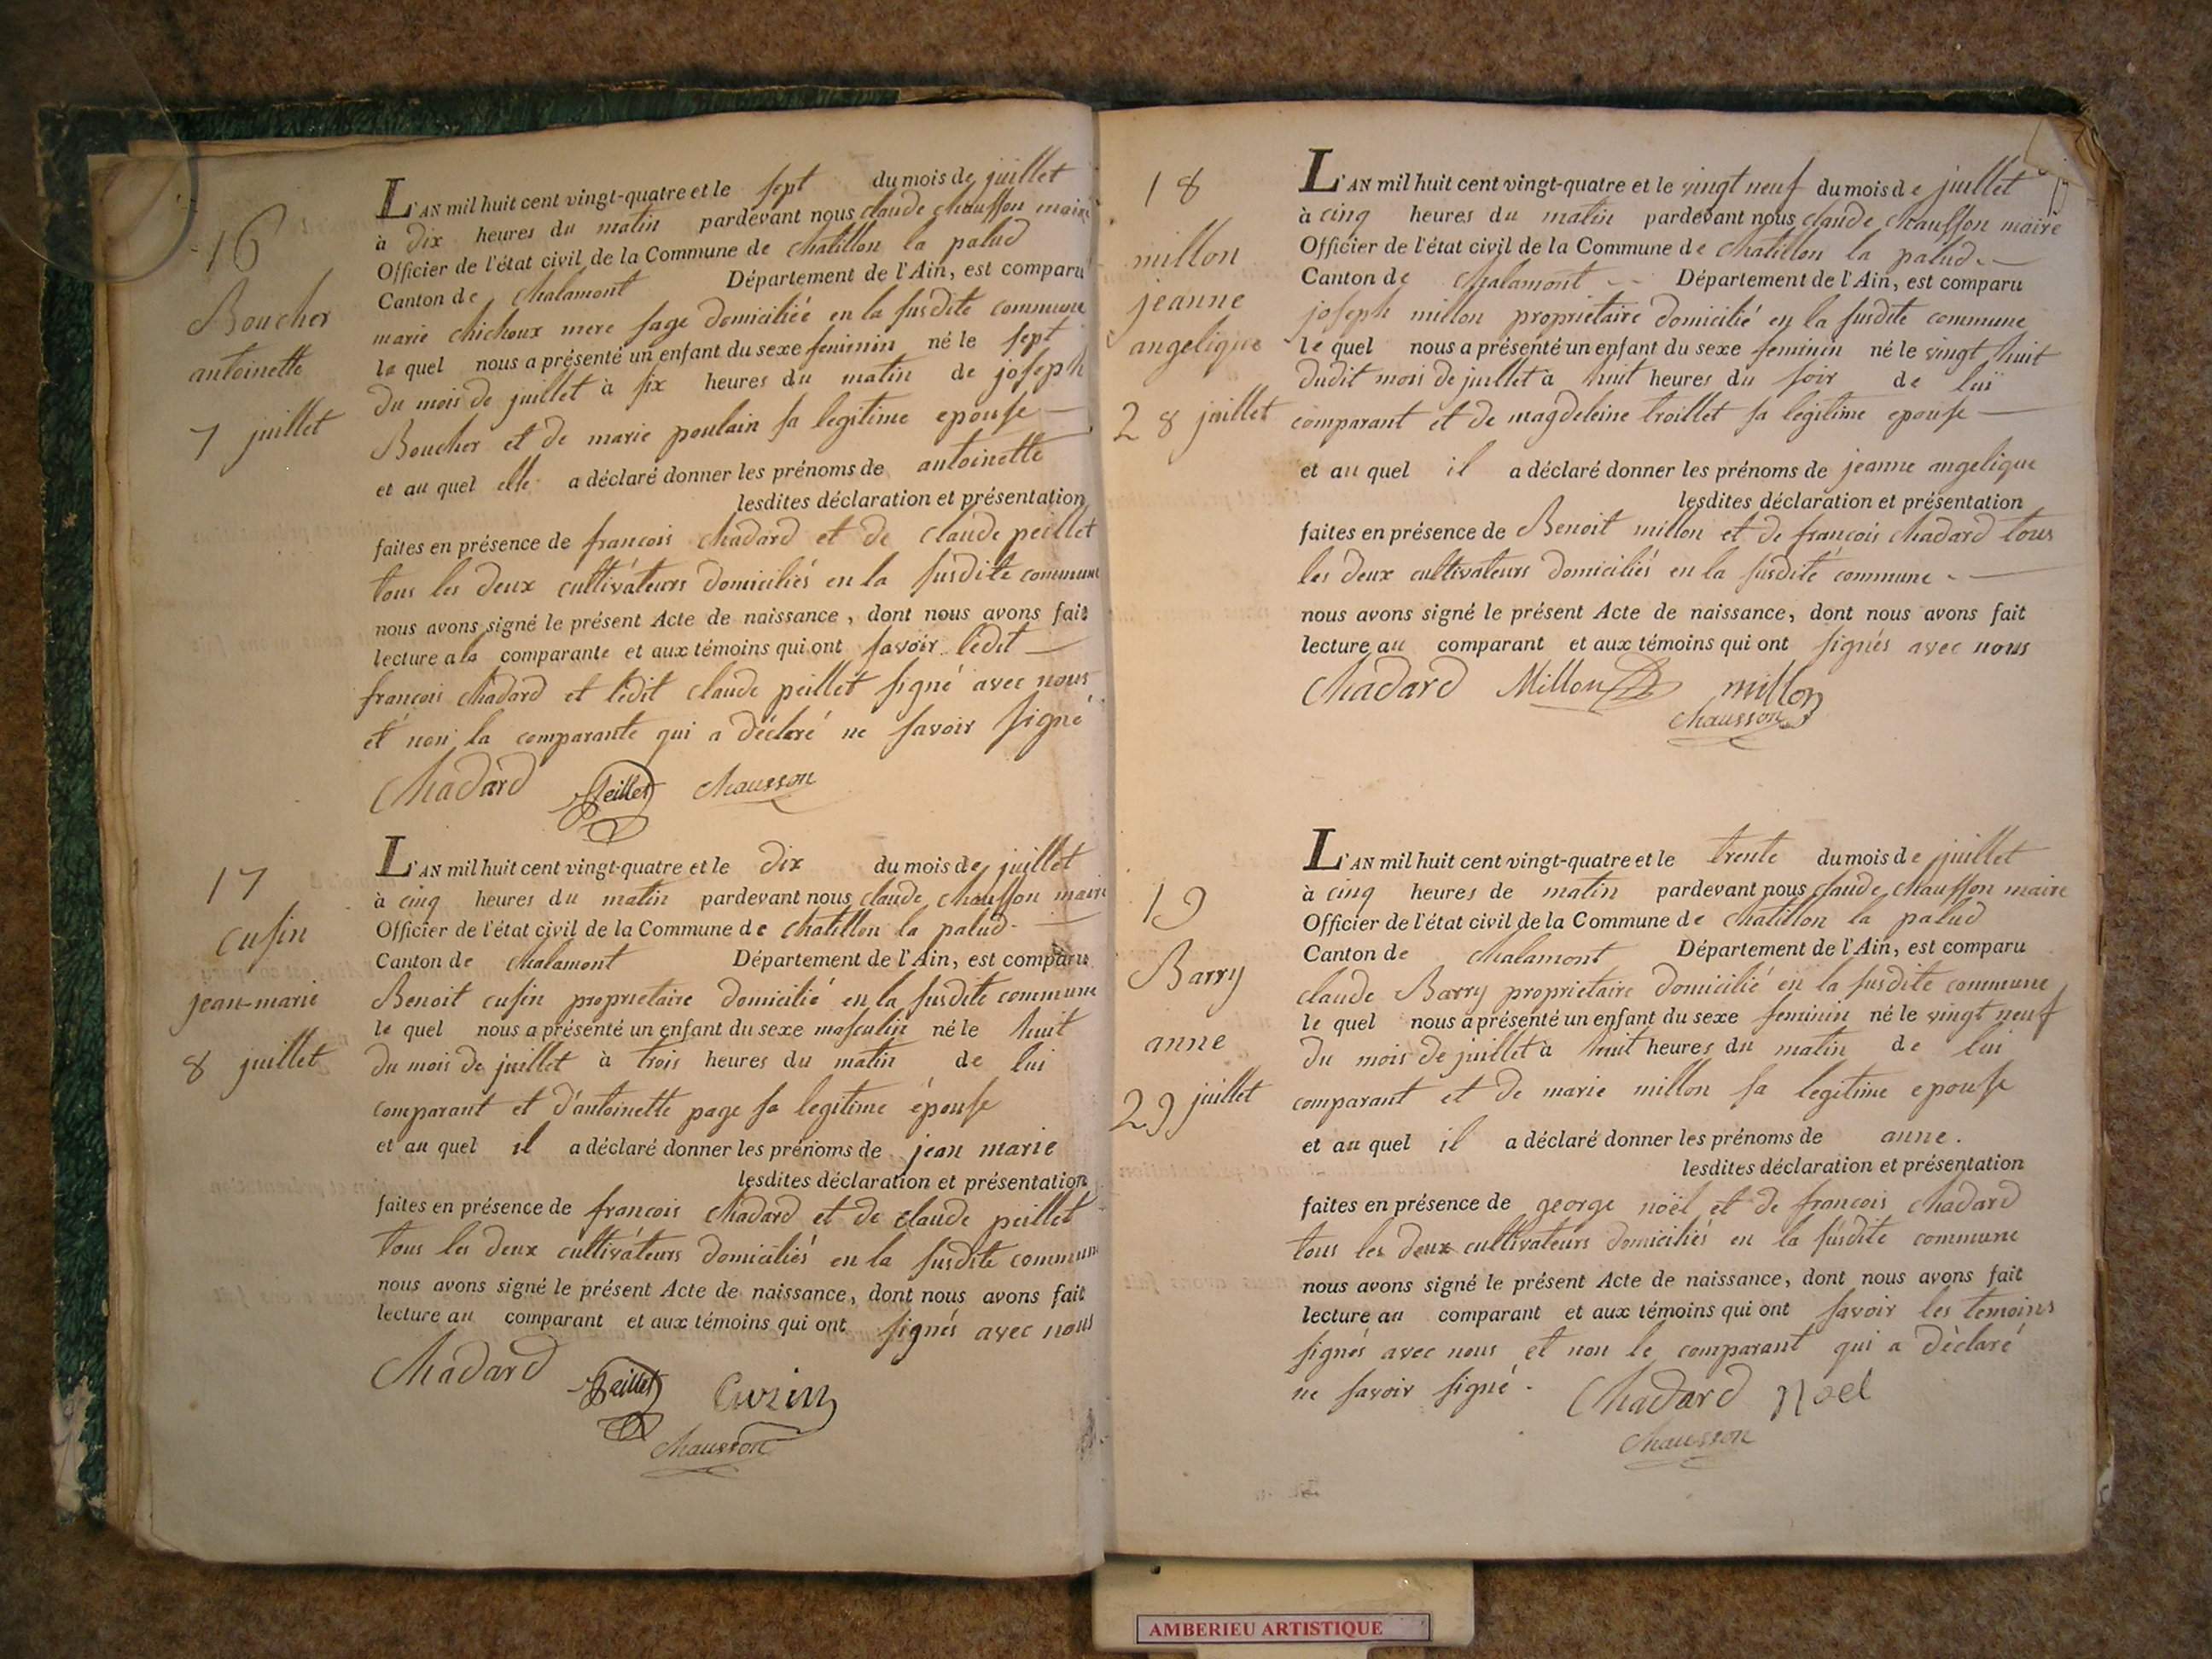 16
Boucher
antoinette
7 juillet
L'AN mil huit cent vingt-quatre et le sept du mois de juillet
à dix heures du matin pardevant nous claude chausson maire
Officier de l'état civil de la Commune de chatillon la palud
Canton de chalamont Département de l'Ain, est comparu
marie chichoux mere sage domiciliée en la susdite commune
le quel nous a présenté un enfant du sexe feminin né le sept
du mois de juillet à six heures du matin de joseph
Boucher et de marie poulain sa legitime epouse
et au quel elle a déclaré donner les prénoms de antoinette
lesdites déclaration et présentation
faites en présence de francois chadard et de claude peillet
tous les deux cultivateurs domiciliés en la susdite commune
nous avons signé le présent Acte de naissance, dont nous avons fait
lecture a la comparante et aux témoins qui ont savoir ledit
francois chadard et ledit claude peillet signé avec nous
et non la comparante qui a déclaré ne savoir signé
Chadard Peillet chausson
17
cusin
jean-marie
8 juillet
L'AN mil huit cent vingt-quatre et le dix du mois de juillet
à cinq heures du matin pardevant nous claude chausson maire
Officier de l'état civil de la Commune de chatillon la palud
Canton de chalamont Département de l'Ain, est comparu
Benoit cusin proprietaire domicilié en la susdite commune
le quel nous a présenté un enfant du sexe masculin né le huit
du mois de juillet à trois heures du matin de lui
comparant et d'antoinette page sa legitime épouse
et au quel il a déclaré donner les prénoms de jean marie
lesdites déclaration et présentation
faites en présence de francois chadard et de claude peillet
tous les deux cultivateurs domiciliés en la susdite commune
nous avons signé le présent Acte de naissance, dont nous avons fait
lecture au comparant et aux témoins qui ont signés avec nous
Chadard Peillet Cuzin
chausson
18
millon
jeanne
angelique
28 juillet
L'AN mil huit cent vingt-quatre et le vingt neuf du mois de juillet
à cinq heures du matin pardevant nous claude chausson maire
Officier de l'état civil de la Commune de chatillon la palud
Canton de chalamont Département de l'Ain, est comparu
joseph millon proprietaire domicilié en la susdite commune
le quel nous a présenté un enfant du sexe feminin né le vingt huit
dudit mois de juillet à huit heures du soir de lui
comparant et de magdeleine troillet sa legitime epouse
et au quel il a déclaré donner les prénoms de jeanne angelique
lesdites déclaration et présentation
faites en présence de Benoit millon et de francois chadard tous
les deux cultivateurs domiciliés en la susdite commune
nous avons signé le présent Acte de naissance, dont nous avons fait
lecture au comparant et aux témoins qui ont signés avec nous
Chadard Millon millon
chausson
19
Barry
anne
29 juillet
L'AN mil huit cent vingt-quatre et le trente du mois de juillet
à cinq heures de matin pardevant nous claude chausson maire
Officier de l'état civil de la Commune de chatillon la palud
Canton de chalamont Département de l'Ain, est comparu
claude Barry proprietaire domicilié en la susdite commune
le quel nous a présenté un enfant du sexe feminin né le vingt neuf
du mois de juillet à huit heures du matin de lui
comparant et de marie millon sa legitime epouse
et au quel il a déclaré donner les prénoms de anne.
lesdites déclaration et présentation
faites en présence de george noël et de francois chadard
tous les deux cultivateurs domiciliés en la susdite commune
nous avons signé le présent Acte de naissance, dont nous avons fait
lecture au comparant et aux témoins qui ont savoir les temoins
signés avec nous et non le comparant qui a déclaré
ne savoir signé. Chadard Noel
chausson
AMBERIEU ARTISTIQUE